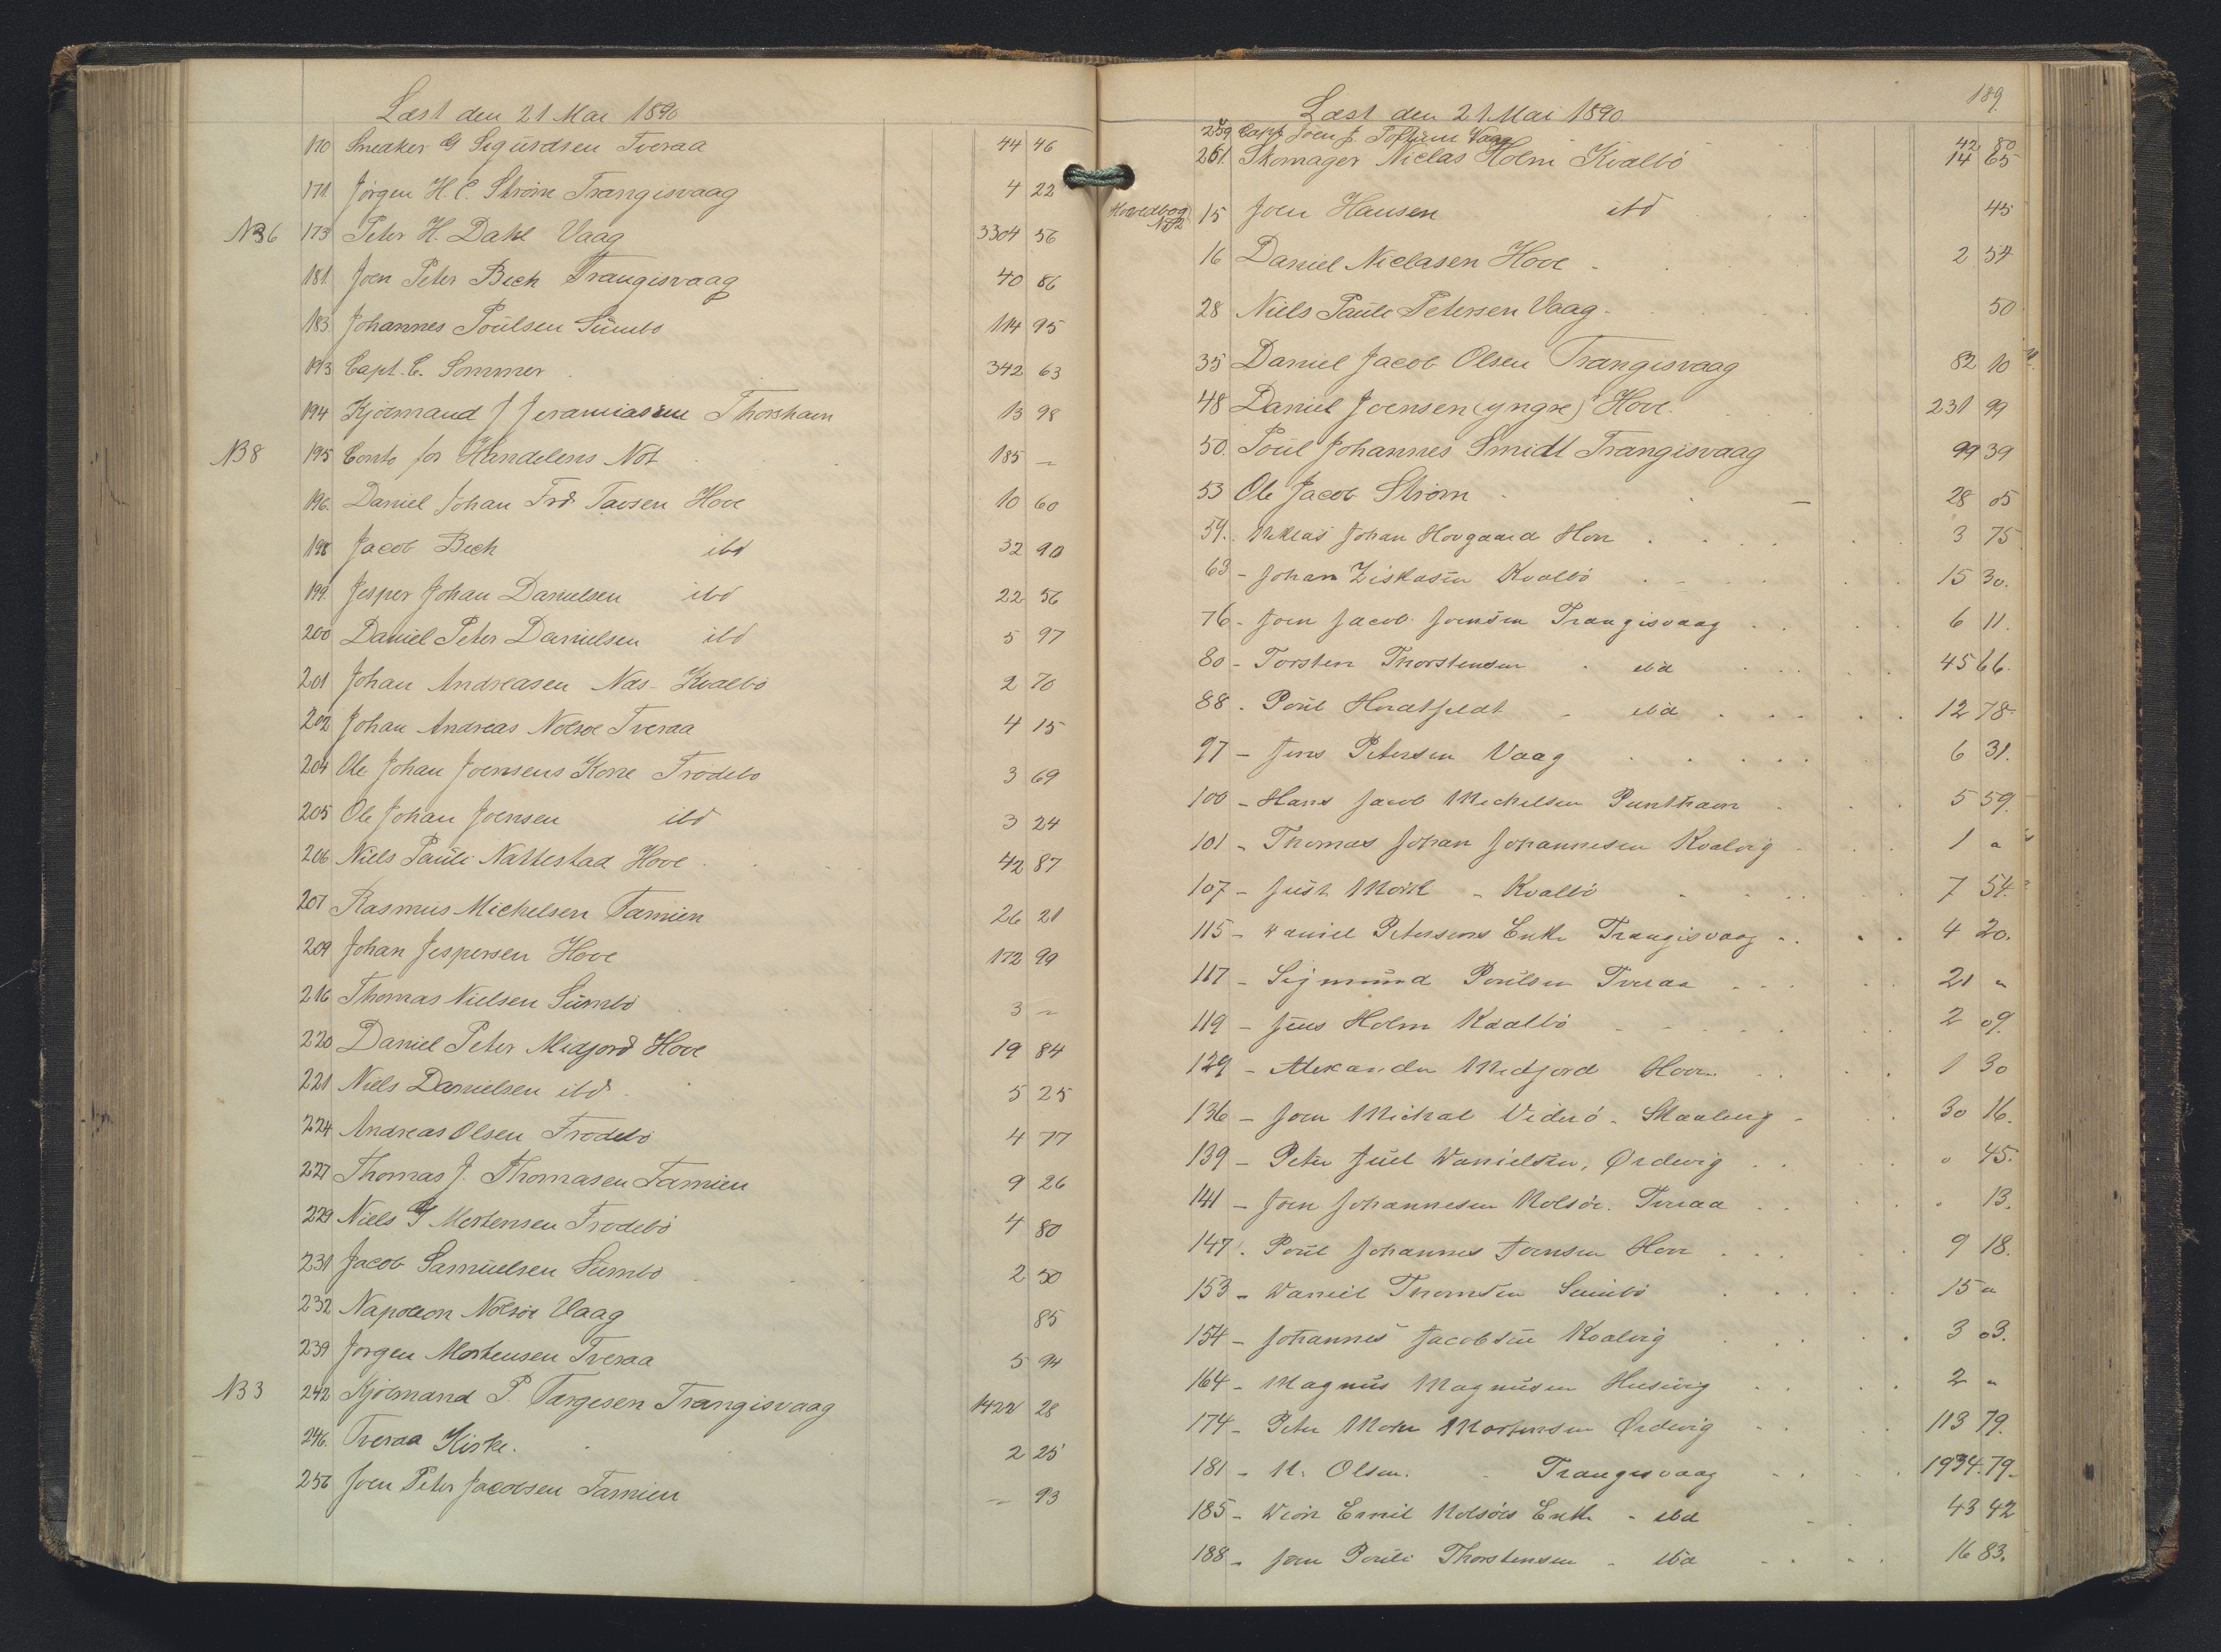 Læst den 21 Mai 1890
170 Snedker G Sigurdsen Tveraa 44 46
171 Jørgen H. C. Strøm Trangisvaag 4 22
NB6 173 Peter H. Dahl Vaag 3304 56
181 Joen Peter Bech Trangisvaag 40 86
183 Johannes Poulsen Sumbø 114 95
193 Capt. C. Sommer 342 63
194 Kjøbmand J Jeramiassen Thorshavn 13 98
NB8 195 Conto for Handelens Not 185 "
196. Daniel Johan Frd Tavsen Hove 10 60
198 Jacob Bech ibd 32 90
199. Jesper Johan Danielsen ibd 22 56
200 Daniel Peter Danielsen ibd 5 97
201 Johan Andreasen Næs Kvalbø 2 70
202 Johan Andreas Nolsøe Tveraa 4 15
204 Ole Johan Joensens Kone Frodebø 3 69
205 Ole Johan Joensen ibd 3 24
206 Niels Pauli Nattestad Hove 42 87
207 Rasmus Michelsen Famien 26 21
209 Johan Jespersen Hove 172 99
216 Thomas Nielsen Sumbø 3 "
220 Daniel Peter Midjord Hove 19 84
221 Niels Danielsen ibd 5 25
224 Andreas Olsen Frodebø 4 77
227 Thomas J. Thomasen Famien 9 26
229 Niels G Mortensen Frodebø 4 80
231 Jacob Samuelsen Sumbø 2 50
232 Napoleon Nolsøe Vaag 85
239 Jørgen Mortensen Tveraa 5 94
NB3 242 Kjøbmand P. Fargesen Trangisvaag 1422 28
246. Tveraa Kirke. 2 25
256 Joen Peter Jacobsen Famien " 93
189.
Læst den 21 Mai 1890
259 Capt Joen J. Toftum Vaag 42 80
261. Skomager Niclas Holm Kvalbø 14 65
Hovedbog No 2 15 Joen Hansen ibd 45
16 Daniel Niclasen Hove 2 54
28 Niels Paule Petersen Vaag 50
35 Daniel Jacob Olsen Trangisvaag 82 10
48 Daniel Joensen (yngre) Hove. 231 99
50. Poul Johannes Smidt Trangisvaag 99 39
53 Ole Jacob Strøm – 28 05
59. Niklas Johan Hovgaard Hove 3 75
63 - Johan Ziskasen Kvalbø 15 30.
76 - Joen Jacob Joensen Trangisvaag 6 11.
80 - Torsten Thorstensen ibd 45 66.
88. Poul Hentze ibd 12 78
97 - Jens Petersen Vaag 6 31.
100 - Hans Jacob Michelsen Punthavn 5 59.
101 - Thomas Johan Johannesen Kvalvig 1 "
107 - Just Mörk - Kvalbø 7 54.
115 - Daniel Petersens Enke Trangisvaag 4 20.
117 - Sigmund Poulsen Tveraa 21 "
119 - Jens Holm Kvalbø 2 09.
129 - Alexander Midjord Hove 1 30
136 - Joen Michal Viderø - Skaalevig 30 16.
139 - Peter Juel Danielsen, Ørdevig " 45.
141 - Joen Johannesen Nolsøe. Tveraa " 13.
147. Poul Johannes Joensen Hove 9 18.
153 - Daniel Thomsen Sumbø 15 "
154 - Johannes Jacobsen Kvalvig 3 03.
164 - Magnus Magnusen Husevig 2 "
174 - Peter Mohr Mortensen Ørdevig 113 79.
181 - N. Olsen. Trangisvaag 1934. 79.
185 - Dion Emil Nolsøes Enke - ibd 43 42
188 - Joen Pouli Thorstensen - ibd 16 83.